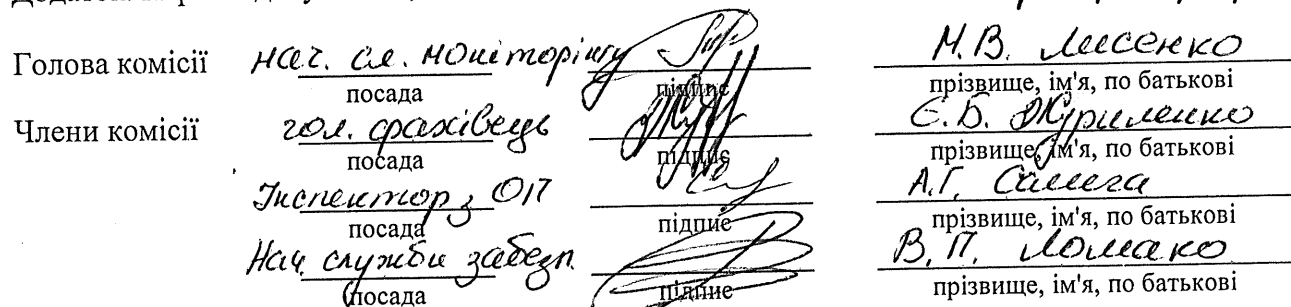 Голова комісії нач. сл. моніторингу М.В. Лисенко
посада підпис прізвище, ім'я, по батькові
Члени комісії гол. фахівець Є.Б. Журиленко
посада підпис прізвище, ім'я, по батькові
Інспектор з ОП А.Г. Салега
посада підпис прізвище, ім'я, по батькові
Нач. служби забезп. В.П. Ломако
посада підпис прізвище, ім'я, по батькові